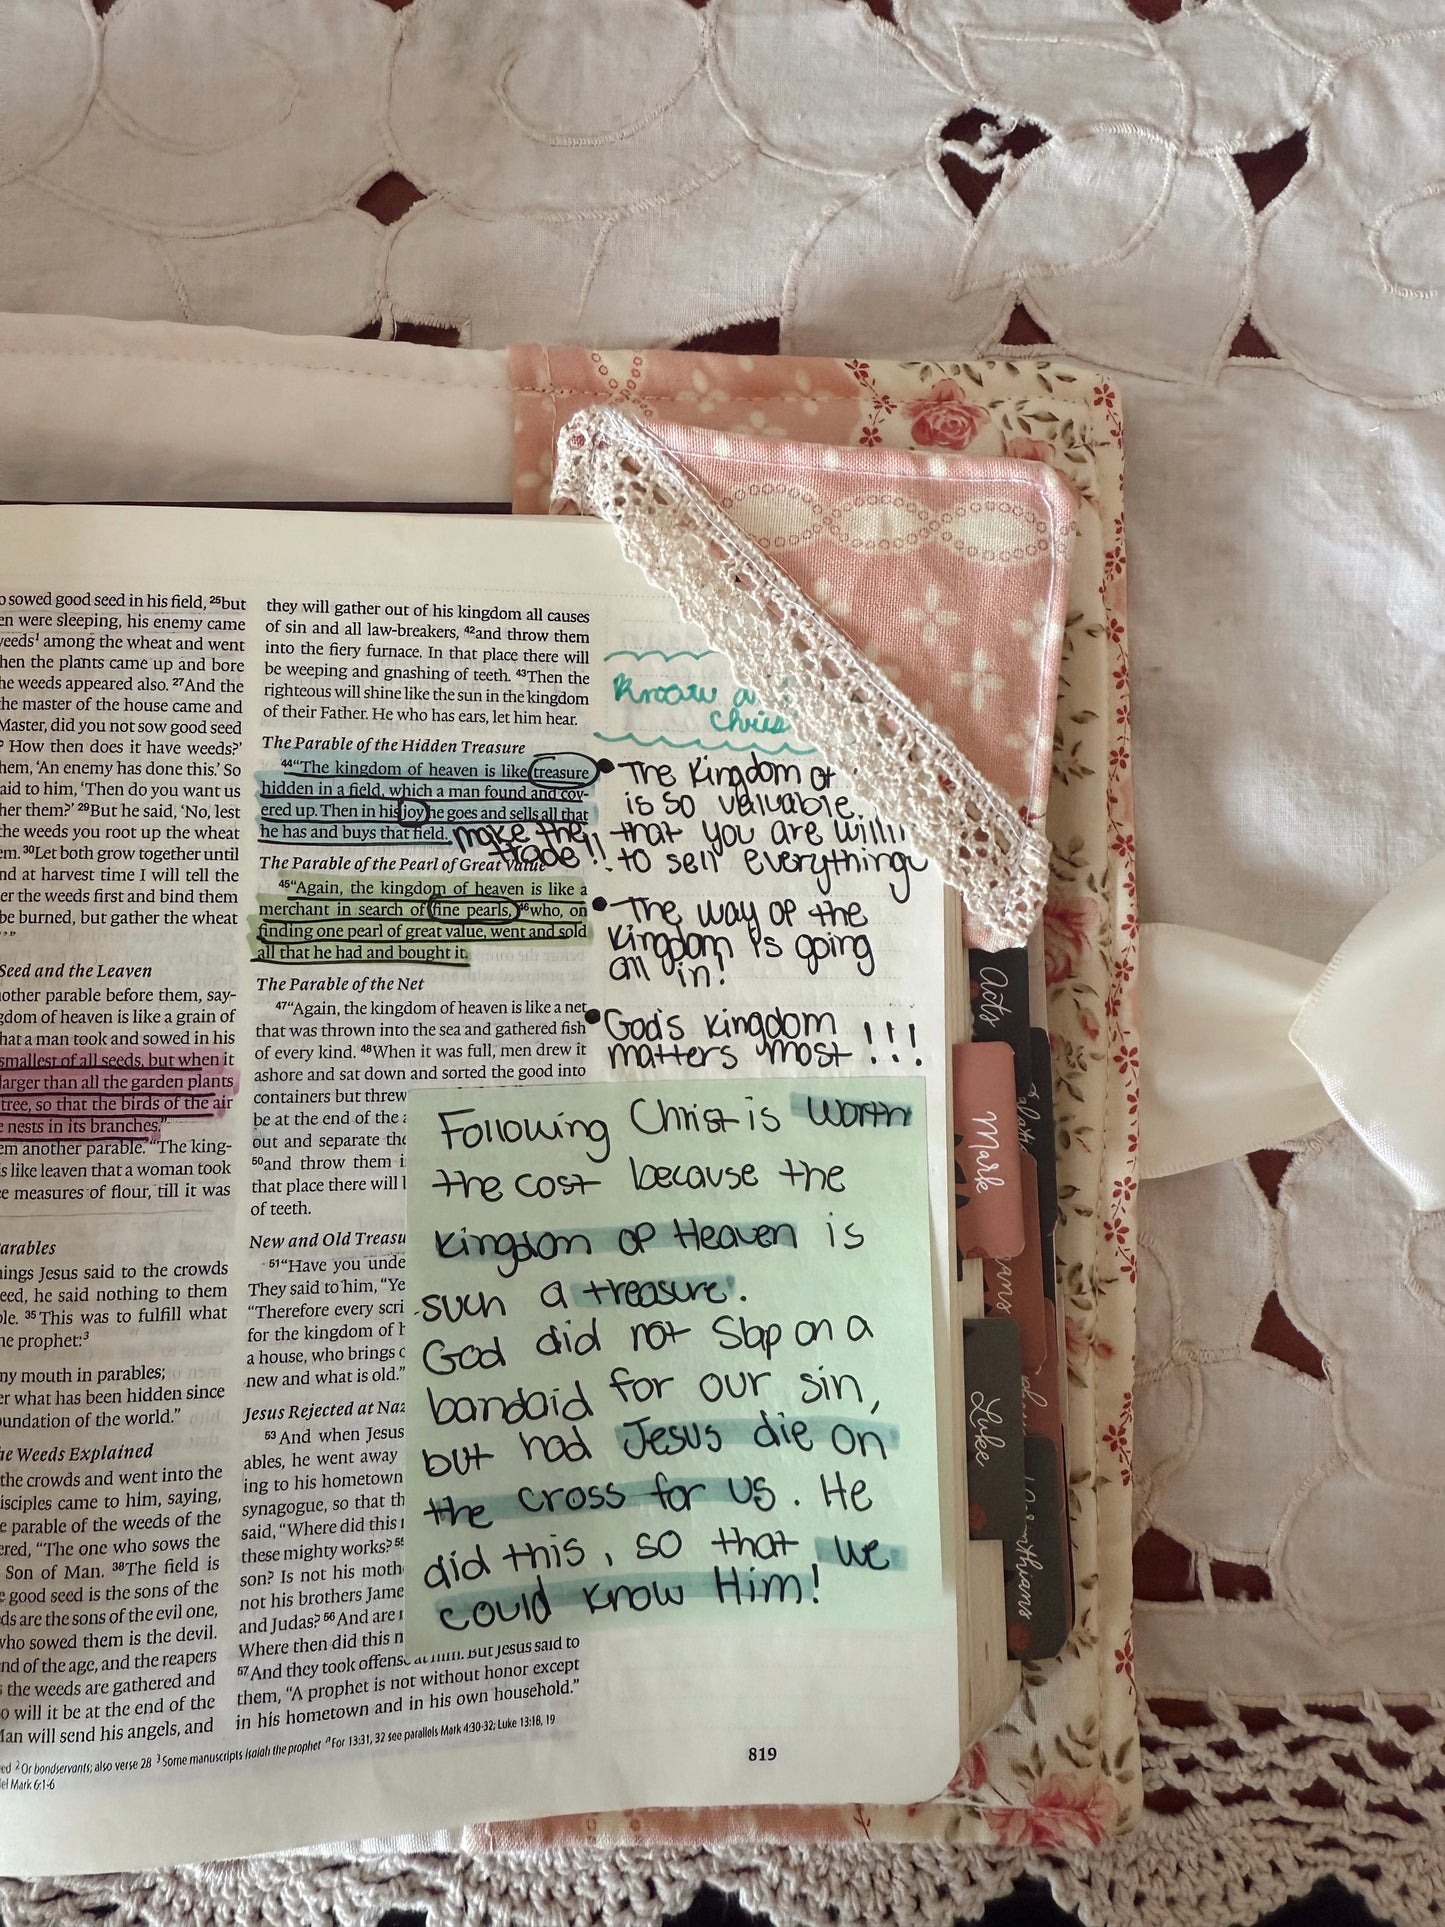 o sowed good seed in his field, 25but
en were sleeping, his enemy came
weeds1 among the wheat and went
hen the plants came up and bore
he weeds appeared also. 27And the
the master of the house came and
Master, did you not sow good seed
? How then does it have weeds?’
hem, ‘An enemy has done this.’ So
aid to him, ‘Then do you want us
her them?’ 29But he said, ‘No, lest
the weeds you root up the wheat
em. 30Let both grow together until
nd at harvest time I will tell the
er the weeds first and bind them
be burned, but gather the wheat
.’”
Seed and the Leaven
nother parable before them, say-
gdom of heaven is like a grain of
hat a man took and sowed in his
smallest of all seeds, but when it
larger than all the garden plants
tree, so that the birds of the air
e nests in its branches.”
em another parable. “The king-
is like leaven that a woman took
ee measures of flour, till it was
arables
hings Jesus said to the crowds
eed, he said nothing to them
ble. 35This was to fulfill what
he prophet:3
my mouth in parables;
er what has been hidden since
oundation of the world.”
he Weeds Explained
the crowds and went into the
isciples came to him, saying,
e parable of the weeds of the
ered, “The one who sows the
Son of Man. 38The field is
e good seed is the sons of the
ds are the sons of the evil one,
who sowed them is the devil.
nd of the age, and the reapers
s the weeds are gathered and
o will it be at the end of the
Man will send his angels, and
they will gather out of his kingdom all causes
of sin and all law-breakers, 42and throw them
into the fiery furnace. In that place there will
be weeping and gnashing of teeth. 43Then the
righteous will shine like the sun in the kingdom
of their Father. He who has ears, let him hear.
The Parable of the Hidden Treasure
44“The kingdom of heaven is like treasure
hidden in a field, which a man found and cov-
ered up. Then in his joy he goes and sells all that
he has and buys that field.
make the
trade!!
The Parable of the Pearl of Great Value
45“Again, the kingdom of heaven is like a
merchant in search of fine pearls, 46who, on
finding one pearl of great value, went and sold
all that he had and bought it.
The Parable of the Net
47“Again, the kingdom of heaven is like a net
that was thrown into the sea and gathered fish
of every kind. 48When it was full, men drew it
ashore and sat down and sorted the good into
containers but threw
be at the end of the a
out and separate the
50and throw them i
that place there will l
of teeth.
New and Old Treasu
51“Have you unde
They said to him, “Ye
“Therefore every scri
for the kingdom of h
a house, who brings o
new and what is old.”
Jesus Rejected at Naz
53And when Jesus
ables, he went away
ing to his hometown
synagogue, so that th
said, “Where did this
these mighty works? 55
son? Is not his moth
not his brothers Jame
and Judas? 56And are
Where then did this
57And they took offense at him. But Jesus said to
them, “A prophet is not without honor except
in his hometown and in his own household.”
ed 2Or bondservants; also verse 28 3Some manuscripts Isaiah the prophet nFor 13:31, 32 see parallels Mark 4:30-32; Luke 13:18, 19
lel Mark 6:1-6
819
Know a
Chris
• The Kingdom of
is so valuable.
that you are willi
to sell everything
• The way of the
Kingdom is going
all in!
• God's kingdom
matters most !!!
Following Christ is worth
the cost because the
Kingdom of Heaven is
such a treasure.
God did not slap on a
bandaid for our sin,
but had Jesus die on
the cross for us. He
did this, so that we
could know Him!
Acts
Mark
Luke